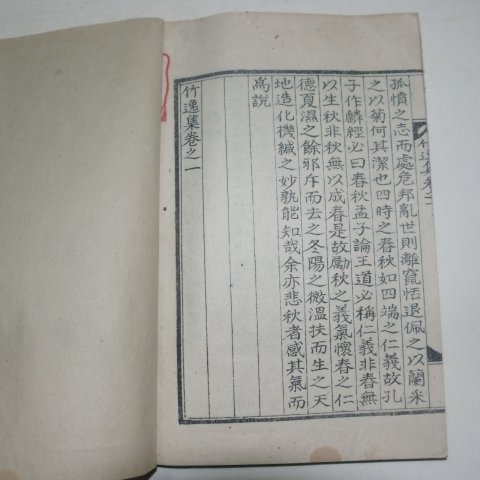 孤憤之志而處危邦亂世則離竄恬退佩之以蘭采
之以菊何其潔也四時之春秋如四端之仁義故孔
子作麟經必曰春秋孟子論王道必稱仁義非春無
以生秋非秋無以成春是故勵秋之義氣懷春之仁
德夏濕之餘邪斥而去之冬陽之微溫扶而生之天
地造化機緘之妙孰能知哉余亦悲秋者感其氣而
爲說
竹逸集卷之一